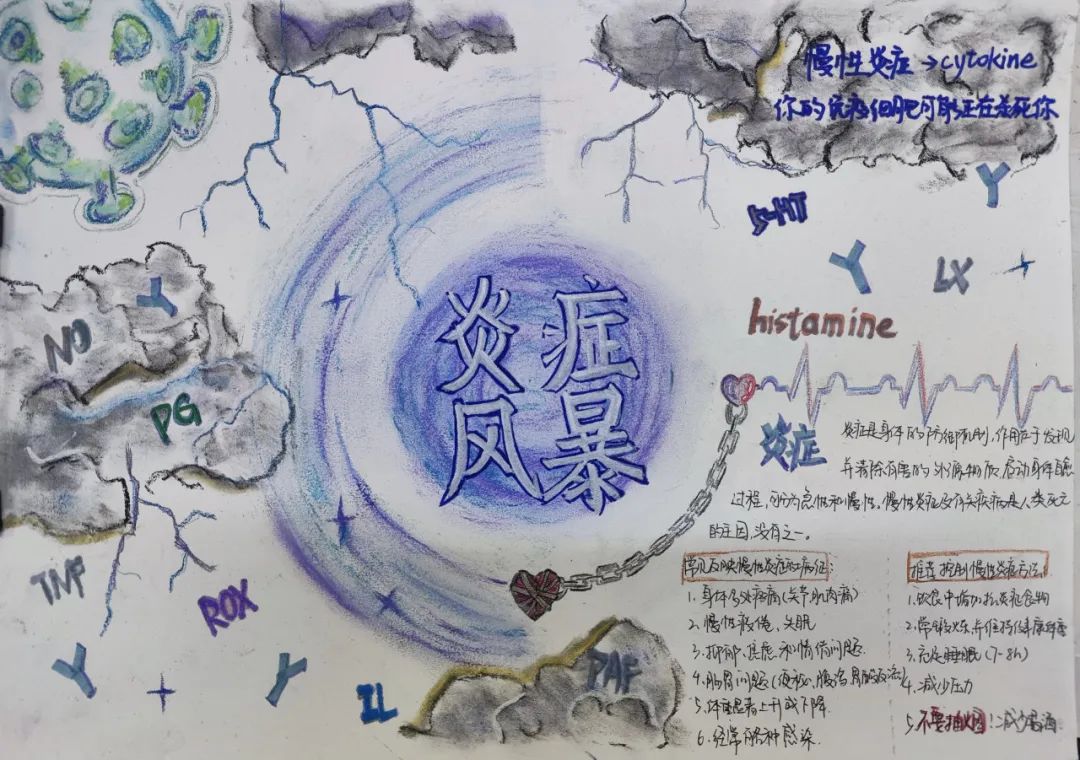 慢性炎症→cytokine
你的免疫细胞可能正在杀死你
5-HT
LX
histamine
炎症
风暴
NO
PG
TNF
ROX
IL
PAF
炎症
炎症是身体的防御机制,作用在于发现
并清除有害的外源物质,启动身体自愈
过程,可分为急性和慢性。慢性炎症及有关疾病是人类死亡
的主因,没有之一。
常见反映慢性炎症的病征:
1.身体各处疼痛(关节,肌肉痛)
2.慢性疲倦、失眠
3.抑郁、焦虑和情绪问题
4.肠胃问题(便秘、腹泻、胃酸反流)
5.体重显著上升或下降
6.经常各种感染.
推荐控制慢性炎症方法:
1.饮食中增加抗炎症食物
2.常锻炼并维持健康体重
3.充足睡眠(7-8h)
4.减少压力
5.不要抽烟!减少喝酒